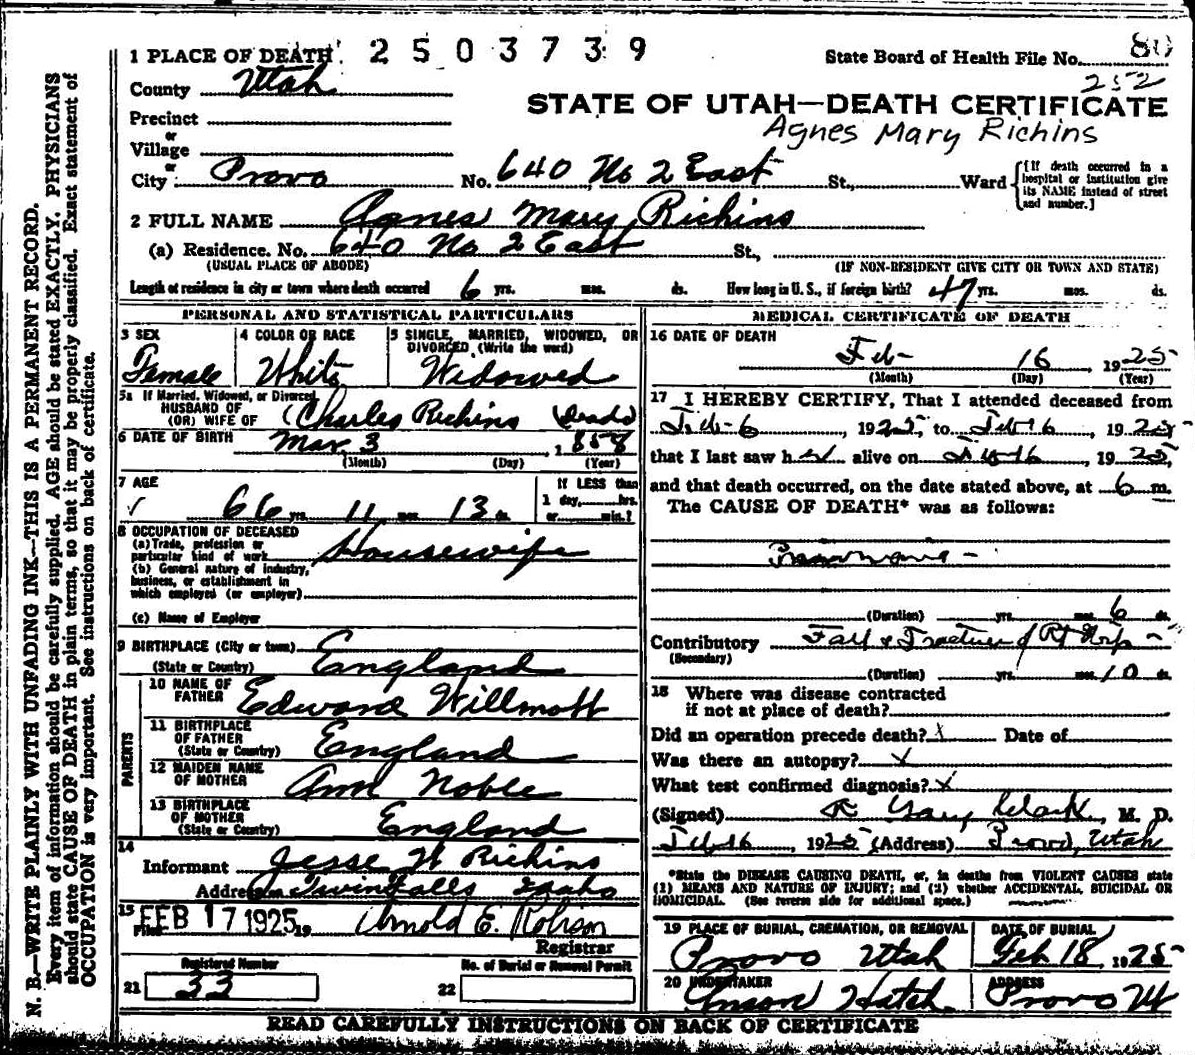 1 PLACE OF DEATH 2503739
State Board of Health File No. 80
252
County Utah
STATE OF UTAH—DEATH CERTIFICATE
Precinct
Agnes Mary Richins
or
Village
or
City Provo No. 640 No 2 East St., Ward [If death occurred in a hospital or institution give its NAME instead of street and number.]
2 FULL NAME Agnes Mary Richins
(a) Residence. No. 640 No 2 East St.,
(USUAL PLACE OF ABODE) (IF NON-RESIDENT GIVE CITY OR TOWN AND STATE)
Length of residence in city or town where death occurred 6 yrs. mos. ds. How long in U. S., if foreign birth? 47 yrs. mos. ds.
PERSONAL AND STATISTICAL PARTICULARS
3 SEX 4 COLOR OR RACE 5 SINGLE, MARRIED, WIDOWED, OR
DIVORCED (Write the word)
Female White Widowed
5a If Married, Widowed, or Divorced
HUSBAND OF
(OR) WIFE OF (Charles Richins (dead)
6 DATE OF BIRTH Mar. 3, 1858
(Month) (Day) (Year)
7 AGE If LESS than
1 day, hrs.
66 yrs. 11 mos. 13 ds. or min.?
8 OCCUPATION OF DECEASED
(a) Trade, profession or
particular kind of work Housewife
(b) General nature of industry,
business, or establishment in
which employed (or employer)
(c) Name of Employer
9 BIRTHPLACE (City or town)
(State or Country) England
PARENTS
10 NAME OF
FATHER Edward Willmott
11 BIRTHPLACE
OF FATHER
(State or Country) England
12 MAIDEN NAME
OF MOTHER Ann Noble
13 BIRTHPLACE
OF MOTHER
(State or Country) England
14
Informant Jesse W Richins
Address Twin Falls Idaho
15 Filed FEB 17 1925 19 Arnold E. Robison
Registrar
Registered Number No. of Burial or Removal Permit
21 33 22
MEDICAL CERTIFICATE OF DEATH
16 DATE OF DEATH
Feb- 16 1925
(Month) (Day) (Year)
17 I HEREBY CERTIFY, That I attended deceased from
Feb-6, 1925, to Feb 16, 1925,
that I last saw her alive on Feb-16, 1925,
and that death occurred, on the date stated above, at 6 m.
The CAUSE OF DEATH* was as follows:
Pneumonia -
(Duration) yrs. mos. 6 ds.
Contributory Fall & Fracture of Rt Hip -
(Secondary)
(Duration) yrs. mos. 10 ds.
18 Where was disease contracted
if not at place of death?
Did an operation precede death? x Date of
Was there an autopsy? x
What test confirmed diagnosis? x
(Signed) Clark, M. D.
Feb 16 1925 (Address) Provo, Utah
*State the DISEASE CAUSING DEATH, or, in deaths from VIOLENT CAUSES state
(1) MEANS AND NATURE OF INJURY; and (2) whether ACCIDENTAL, SUICIDAL OR
HOMICIDAL. (See reverse side for additional space.)
19 PLACE OF BURIAL, CREMATION, OR REMOVAL DATE OF BURIAL
Provo Utah Feb 18, 1925
20 UNDERTAKER ADDRESS
Anson Hatch Provo Ut
READ CAREFULLY INSTRUCTIONS ON BACK OF CERTIFICATE
N. B.—WRITE PLAINLY WITH UNFADING INK—THIS IS A PERMANENT RECORD.
Every item of information should be carefully supplied. AGE should be stated EXACTLY. PHYSICIANS
should state CAUSE OF DEATH in plain terms, so that it may be properly classified. Exact statement of
OCCUPATION is very important. See instructions on back of certificate.